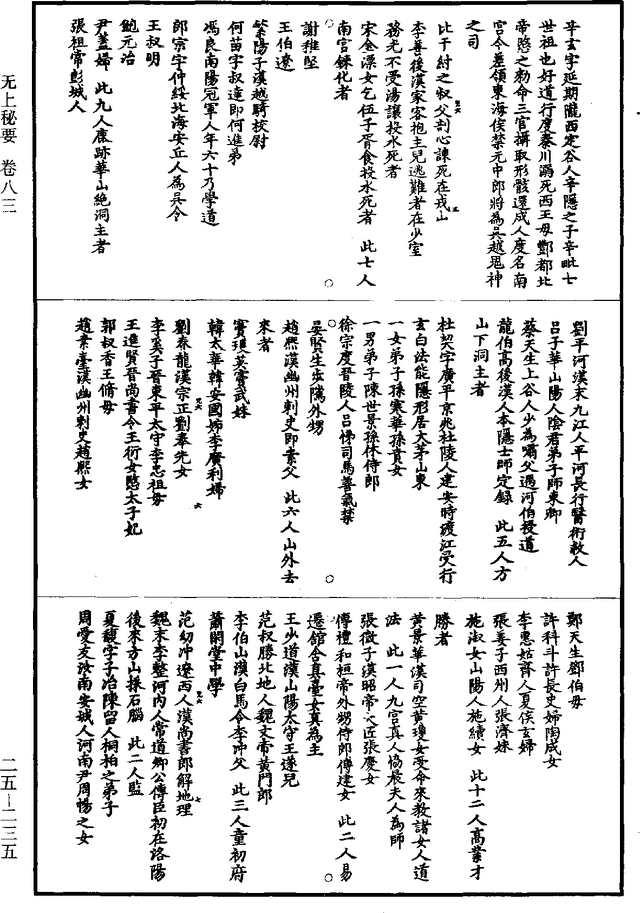 辛玄字延期隴西定谷人辛隱之子辛毗七
世祖也好道行度秦川溺死西王母酆都北
帝愍之勑命三官攝取形骸還成人度名南
宮今差領東海侯禁元中郎將為吳越鬼神
之司
比干紂之叔父剖心諫死在戎山
李善後漢家客抱主兒逃難者在少室
務光不受湯讓投水死者
宋金漂女乞伍子胥食投水死者 此七人
南宮鍊化者
謝稚堅
王伯遼
繁陽子漢越騎校尉
何苗字叔達即何進弟
馮良南陽冠軍人年六十乃學道
郎宗字仲綏北海安丘人為吳令
王叔明
鮑元治
尹蓋婦 此九人鹿跡華山絕洞主者
張祖常彭城人
劉平河漢末九江人平河長行醫術救人
呂子華山陽人陰君弟子師東卿
蔡天生上谷人少為嘯父遇河伯授道
龍伯高後漢人本隱士師定錄 此五人方
山下洞主者
杜契字廣平京兆杜陵人建安時渡江受行
玄白法能隱形居大茅山東
一女弟子孫寒華孫賁女
一男弟子陳世景孫休侍郎
徐宗度晉陵人呂悌司馬善氣禁
晏賢生步隲外甥
趙熙漢幽州刺史即素父 此六人山外去
來者
竇瓊英竇武妹
韓太華韓安國姊李廣利婦
劉春龍漢宗正劉奉先女
李奚子晉東平太守李忠祖母
王進賢晉尚書令王衍女愍太子妃
郭叔香王脩母
趙素臺漢幽州刺史趙熙女
鄭天生鄧伯母
許科斗許長史婦陶成女
李惠姑齊人夏侯玄婦
張姜子西州人張濟妹
施淑女山陽人施績女 此十二人高業才
勝者
黃景華漢司空黃瓊女受命來教諸女人道
法 此一人九宮真人協晨夫人為師
張微子漢昭帝大匠張慶女
傅禮和桓帝外甥侍郎傅建女 此二人易
遷館含真臺女真為主
王少道漢山陽太守王遂兒
范叔勝北地人魏文帝黃門郎
李伯山漢白馬令李沖父 此三人童初府
蕭閑堂中學
范幼沖遼西人漢尚書郎解地理
魏末李整河內人常道鄉公傅臣初在洛陽
後來方山採石腦 此二人監
夏馥字子冶陳留人桐柏之弟子
周愛支汝南安城人河南尹周暢之女
无上秘要 卷八三
二五—二三五